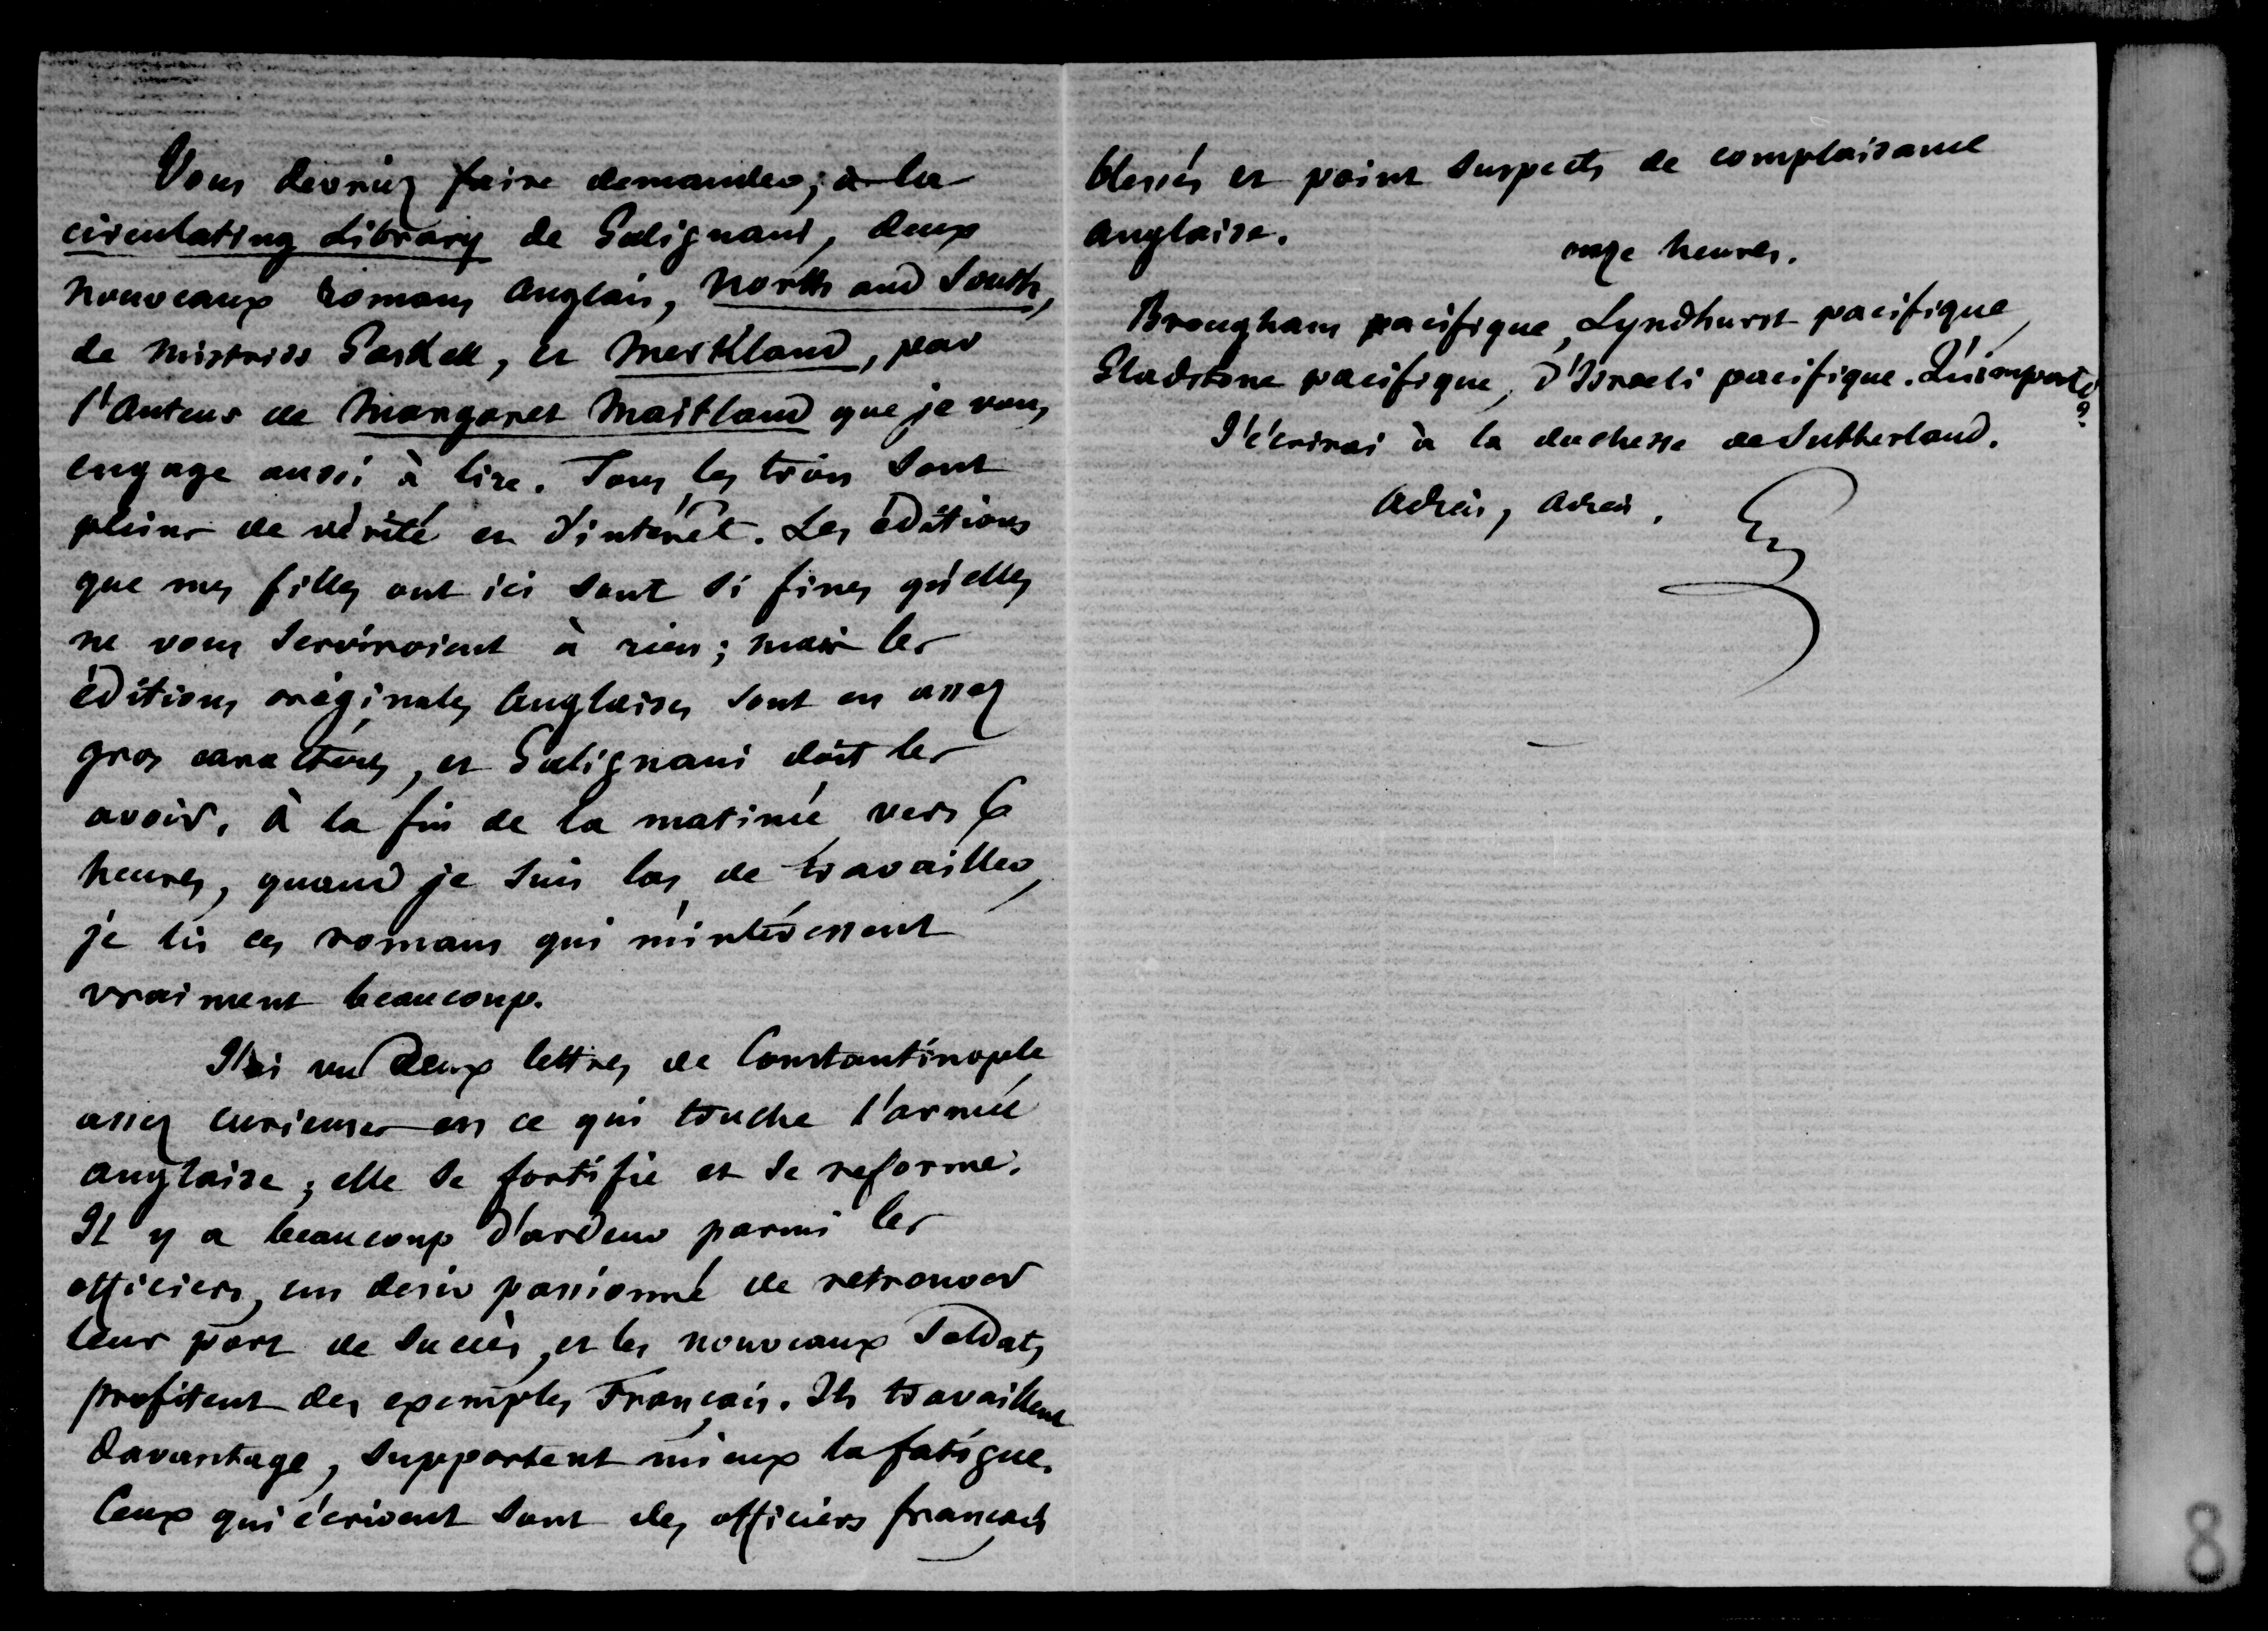 Vous devriez faire demander, à la
circulating Library de Galignani, deux
nouveaux romans anglais, North and South,
de Mistriss Gaskell, et Merkland, par
l'auteur de Margaret Maitland que je vous
engage aussi à lire. Tous les trois sont
pleins de vérité et d'intérêt. Les éditions
que mes filles ont ici sont si fines qu'elles
ne vous serviroient à rien ; mais les
éditions originales anglaises sont en assez
gros caractères, et Galignani doit les
avoir. à la fin de la matinée, vers 6
heures, quand je suis las de travailler,
je lis ces romans qui m'intéressent
vraiment beaucoup.
J'ai vu deux lettres de Constantinople
assez curieuses en ce qui touche l'armée
anglaise ; elle se fortifie et se reforme.
Il y a beaucoup d'ardeur parmi les
officiers, un desir passionné de retrouver
leur part de succès, et les nouveaux soldats
profitent des exemples Français. Ils travaillent
davantage, supportent mieux la fatigue.
Ceux qui écrivent sont des officiers français
blessés et point suspects de complaisance
anglaise.
onze heures.
Brougham pacifique, Lyndhurst pacifique,
Gladstone pacifique, d'Israeli pacifique. Qu'importe ?
J'écrirai à la duchesse de Sutherland.
Adieu, adieu.
8